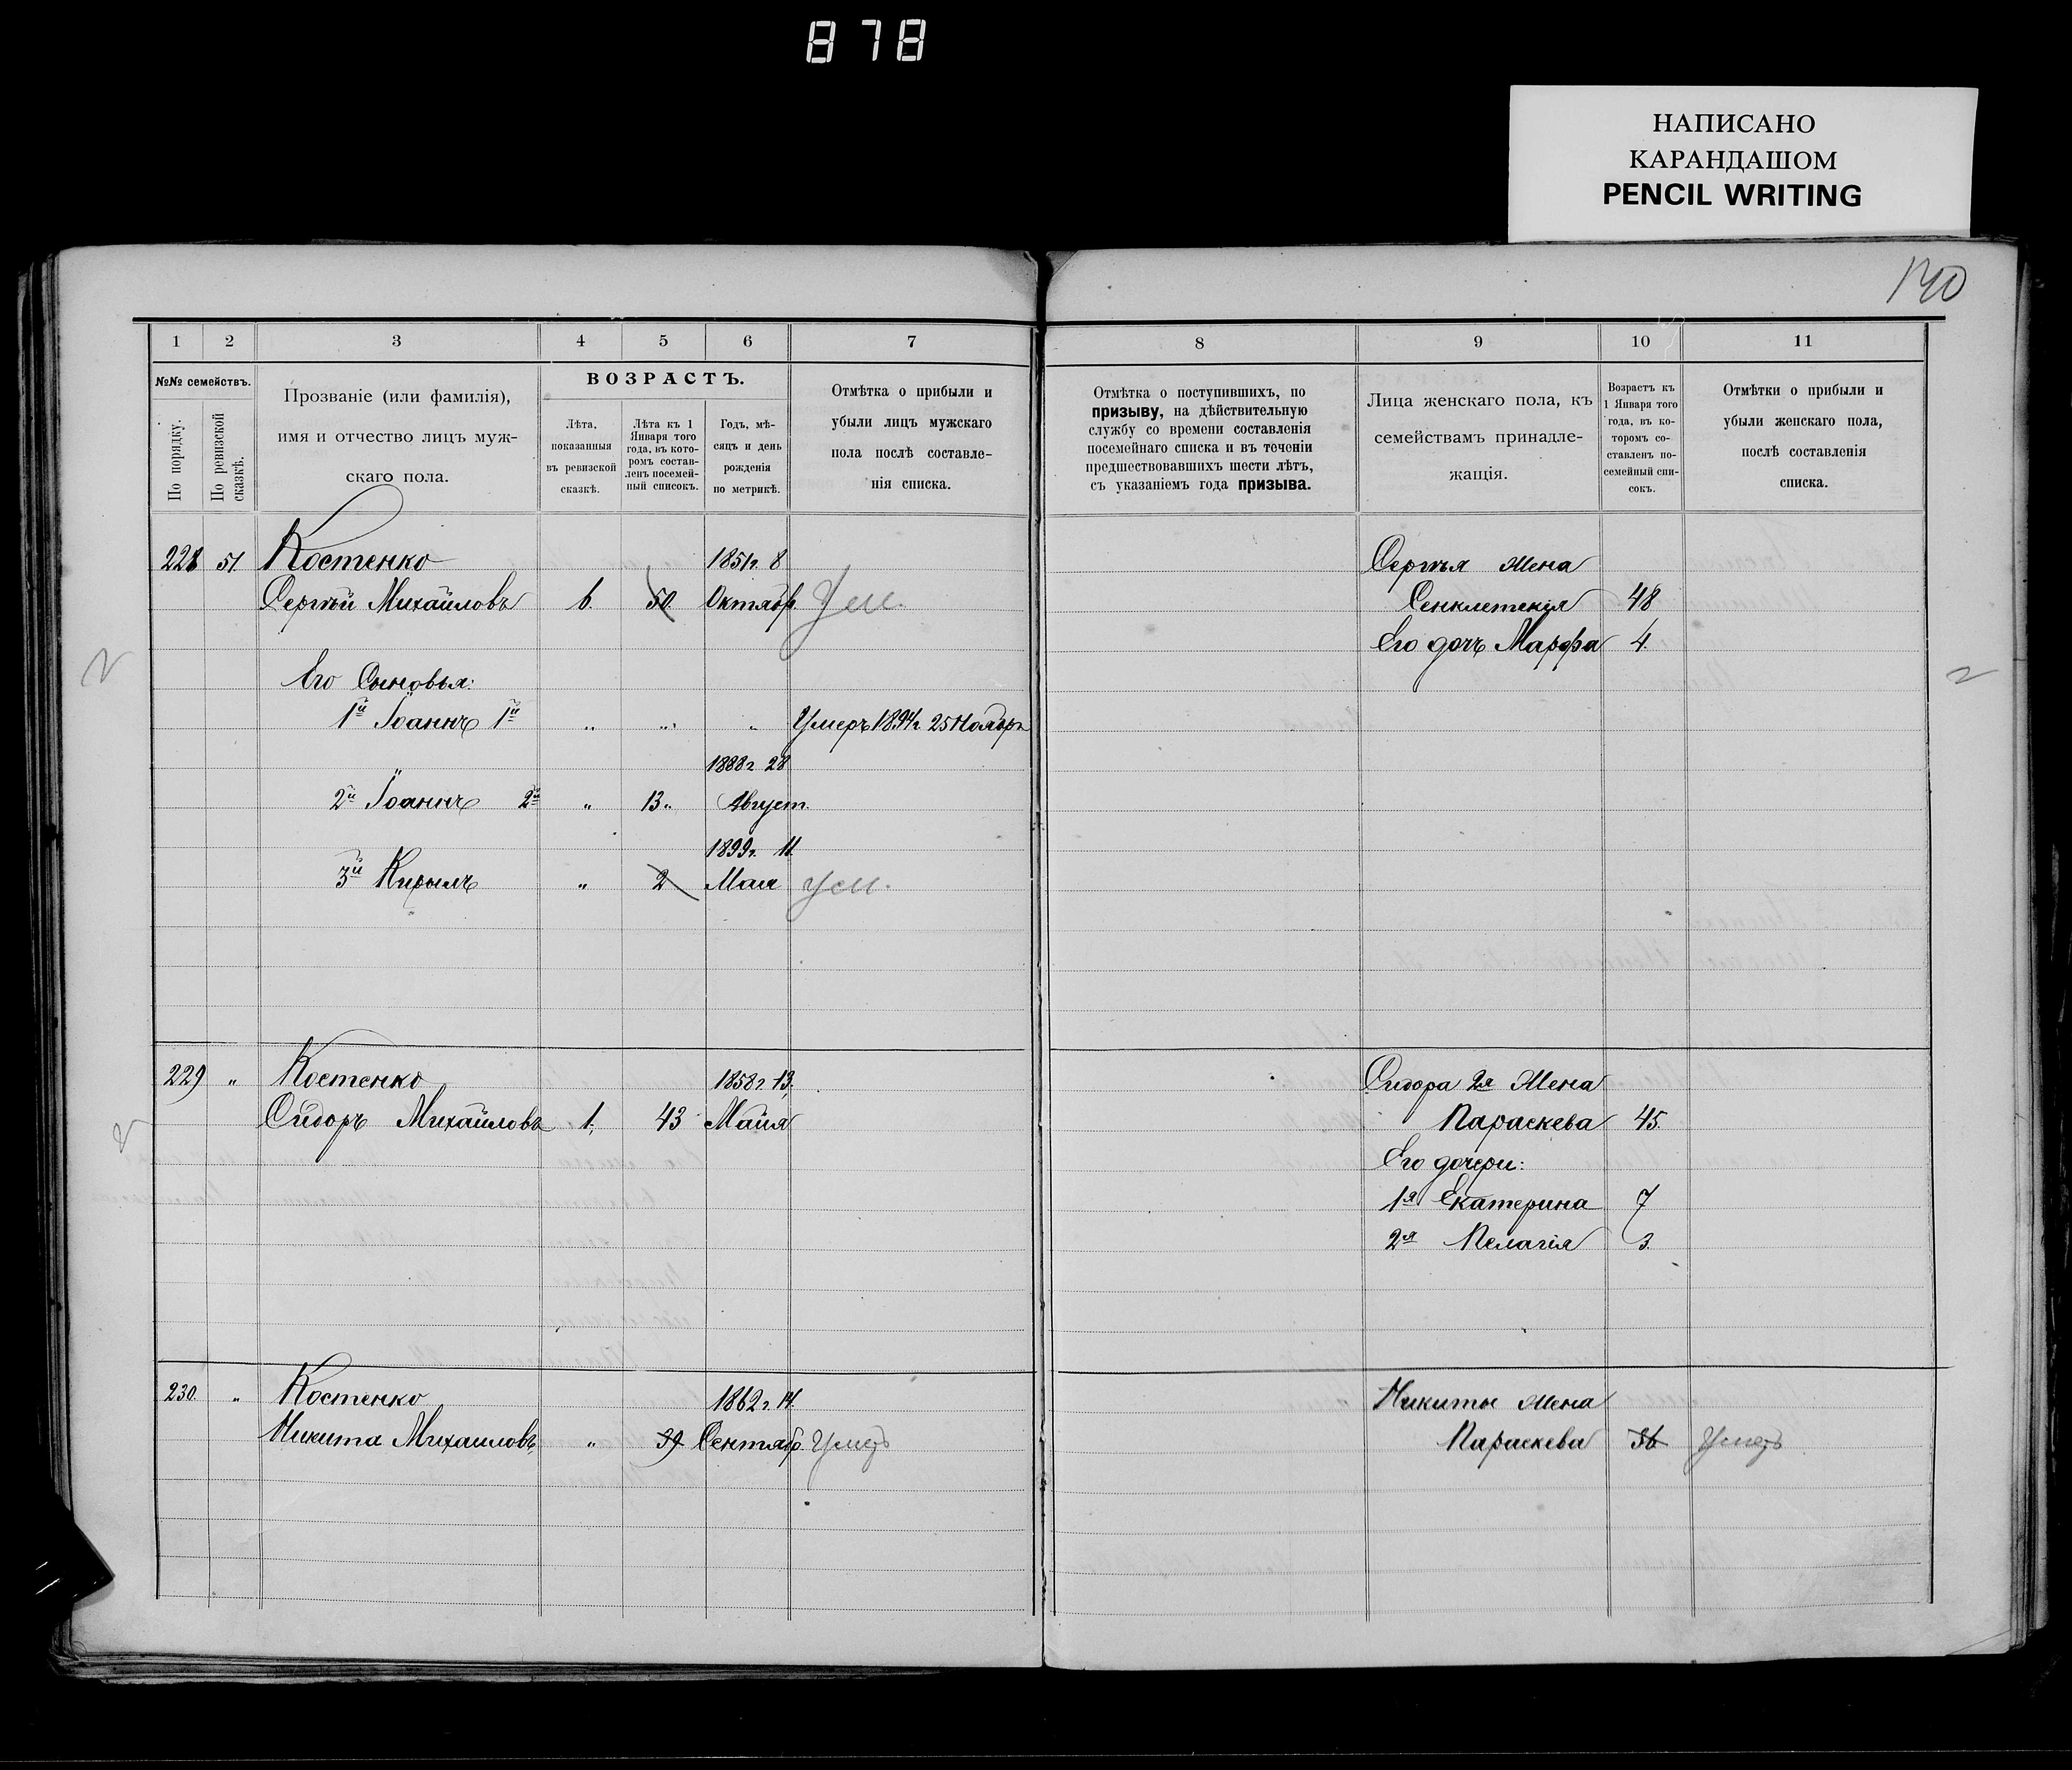 878
НАПИСАНО
КАРАНДАШОМ
PENCIL WRITING
140
1 2 3 4 5 6 7 8 9 10 11
№№ семействъ.
По порядку.
По ревизской сказкѣ.
Прозваніе (или фамилія),
имя и отчество лицъ муж-
скаго пола.
ВОЗРАСТЪ.
Лѣта,
показанныя
въ ревизской
сказкѣ.
Лѣта къ 1
Января того
года, въ кото-
ромъ состав-
ленъ посемей-
ный списокъ.
Годъ, мѣ-
сяцъ и день
рожденія
по метрикѣ.
Отмѣтка о прибыли и
убыли лицъ мужскаго
пола послѣ составле-
нія списка.
Отмѣтка о поступившихъ, по
призыву, на дѣйствительную
службу со времени составленія
посемейнаго списка и въ теченіи
предшествовавшихъ шести лѣтъ,
съ указаніемъ года призыва.
Лица женскаго пола, къ
семействамъ принадле-
жащія.
Возрастъ къ
1 Января того
года, въ ко-
торомъ со-
ставленъ по-
семейный спи-
сокъ.
Отмѣтки о прибыли и
убыли женскаго пола,
послѣ составленія
списка.
228 51 Костенко 1851г. 8 Сергѣя жена
Сергѣй Михайловъ 6. 50. Октябр. Ум. Сенклетекія 48
Его дочь Марфа 4.
Его Сыновья:
1й Іоаннъ 1й „ „ „ Умеръ 1894г. 25 Ноября
1888г. 28
2й Іоаннъ 2й „ 13„ Август.
1899г. 11.
3й Кирылъ „ 2 Мая ум.
229 „ Костенко 1858г. 13. Сидора 2я жена
Сидоръ Михайловъ 1. 43 Майя Параскева 45.
Его дочери:
1я Екатерина 7
2я Пелагія 3.
230. „ Костенко 1862г. 14. Никиты жена
Никита Михаиловъ „ 39 Сентябр. Умеръ Параскева 36 Умер.